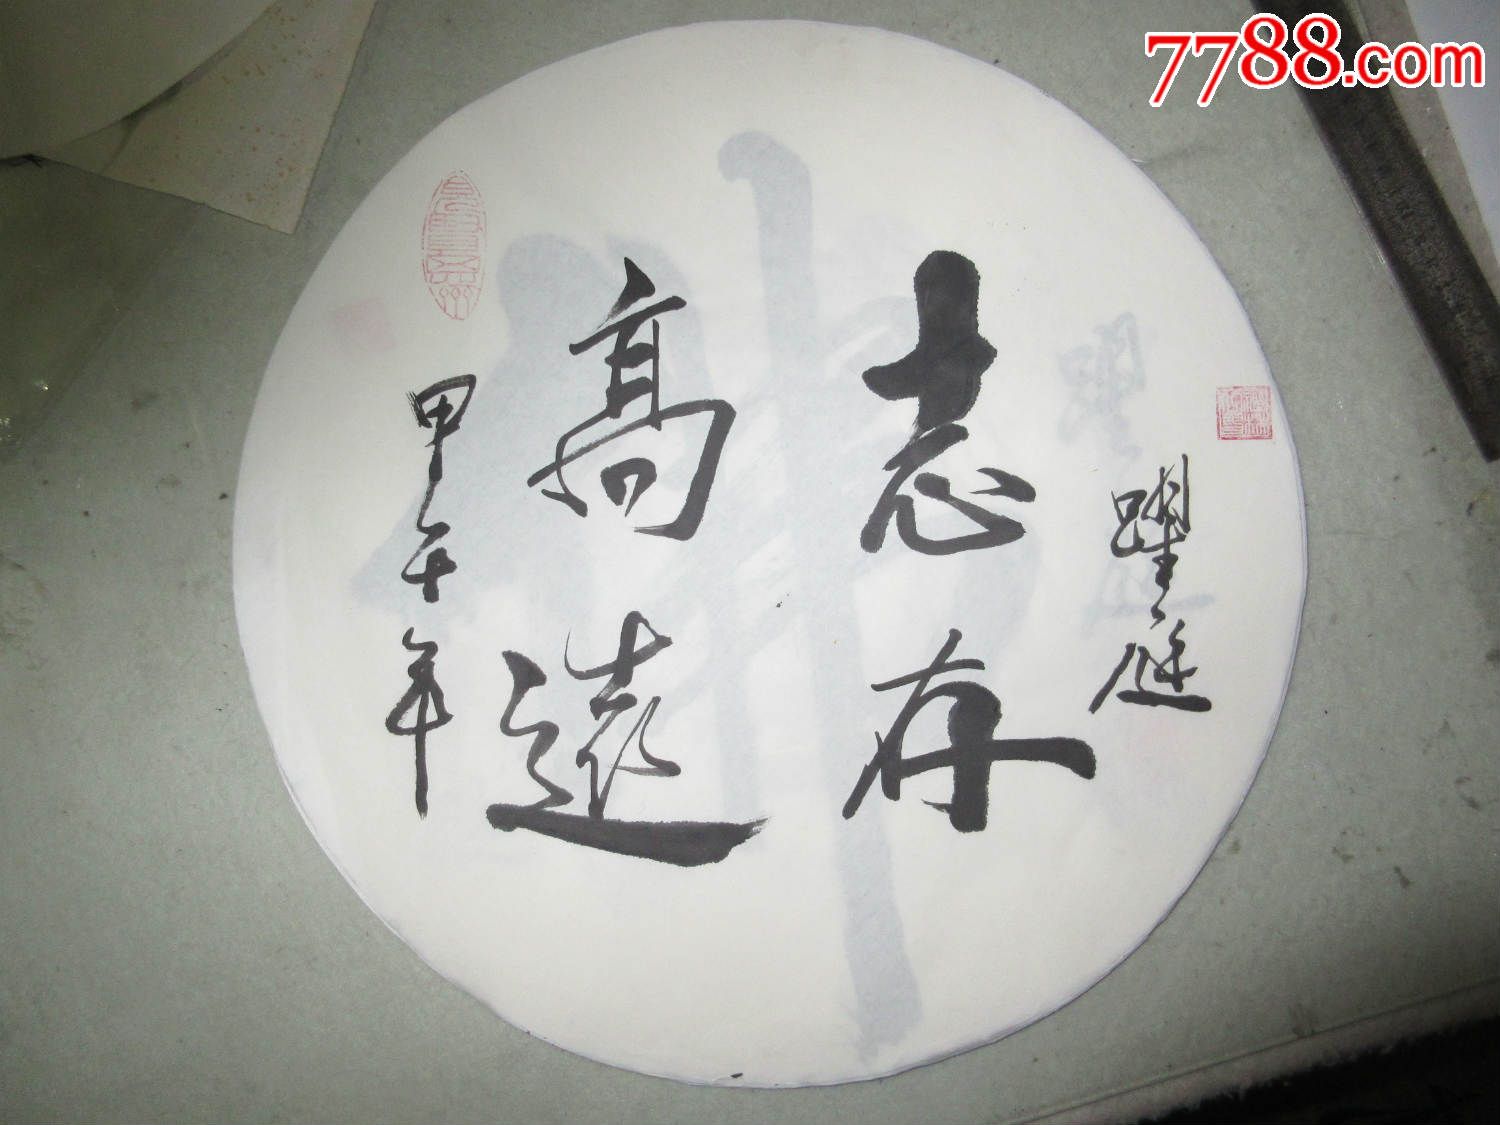 7788.com
躍庭
志存
高遠
甲午年